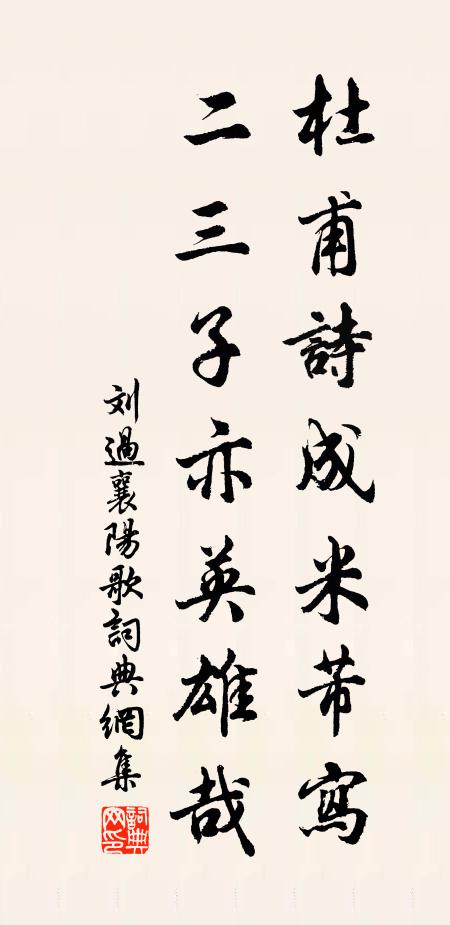 杜甫詩成米芾寫
二三子亦英雄哉
刘過襄陽歌詞典網集
詞典网印